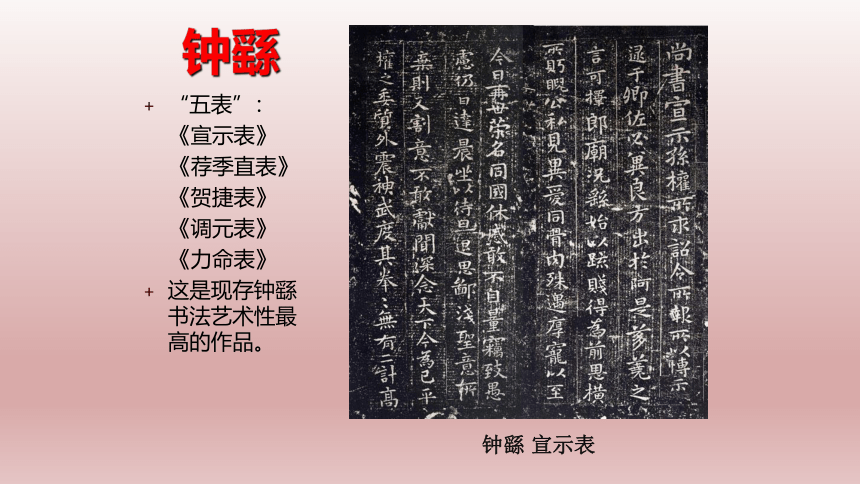 钟繇
“五表”：
《宣示表》
《荐季直表》
《贺捷表》
《调元表》
《力命表》
这是现存钟繇
书法艺术性最
高的作品。
尚書宣示孫權所求詔令所報所以博示
逮于卿佐必冀良方出於阿是芻蕘之
言可擇郎廟況繇始以疏賤得為前恩橫
所眄睨公私見異愛同骨肉殊遇厚寵以至
今日再世榮名同國休慼敢不自量竊致愚
慮仍日達晨坐以待旦退思鄙淺聖意所
棄則又割意不敢獻聞深念天下今為已平
權之委質外震神武度其拳〻無有二計高
钟繇 宣示表